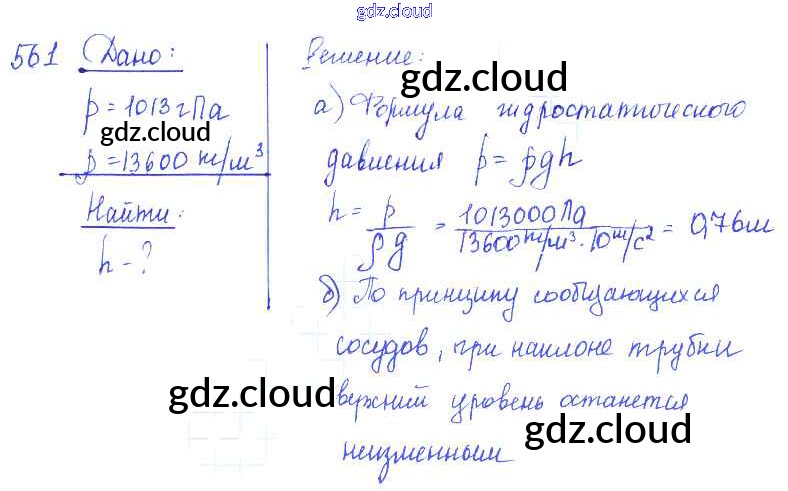 gdz.cloud
561 Дано:
p = 1013 гПа
gdz.cloud
ρ = 13600 кг/м³
Найти:
h - ?
Решение:
gdz.cloud
а) Формула гидростатического
давления p = ρgh
h = p / ρg = 1013000 Па / 13600 кг/м³ · 10 м/с² = 0,76 м
б) По принципу сообщающихся
сосудов, при наклоне трубки
gdz.cloud
верхний уровень останется
gdz.cloud
неизменным